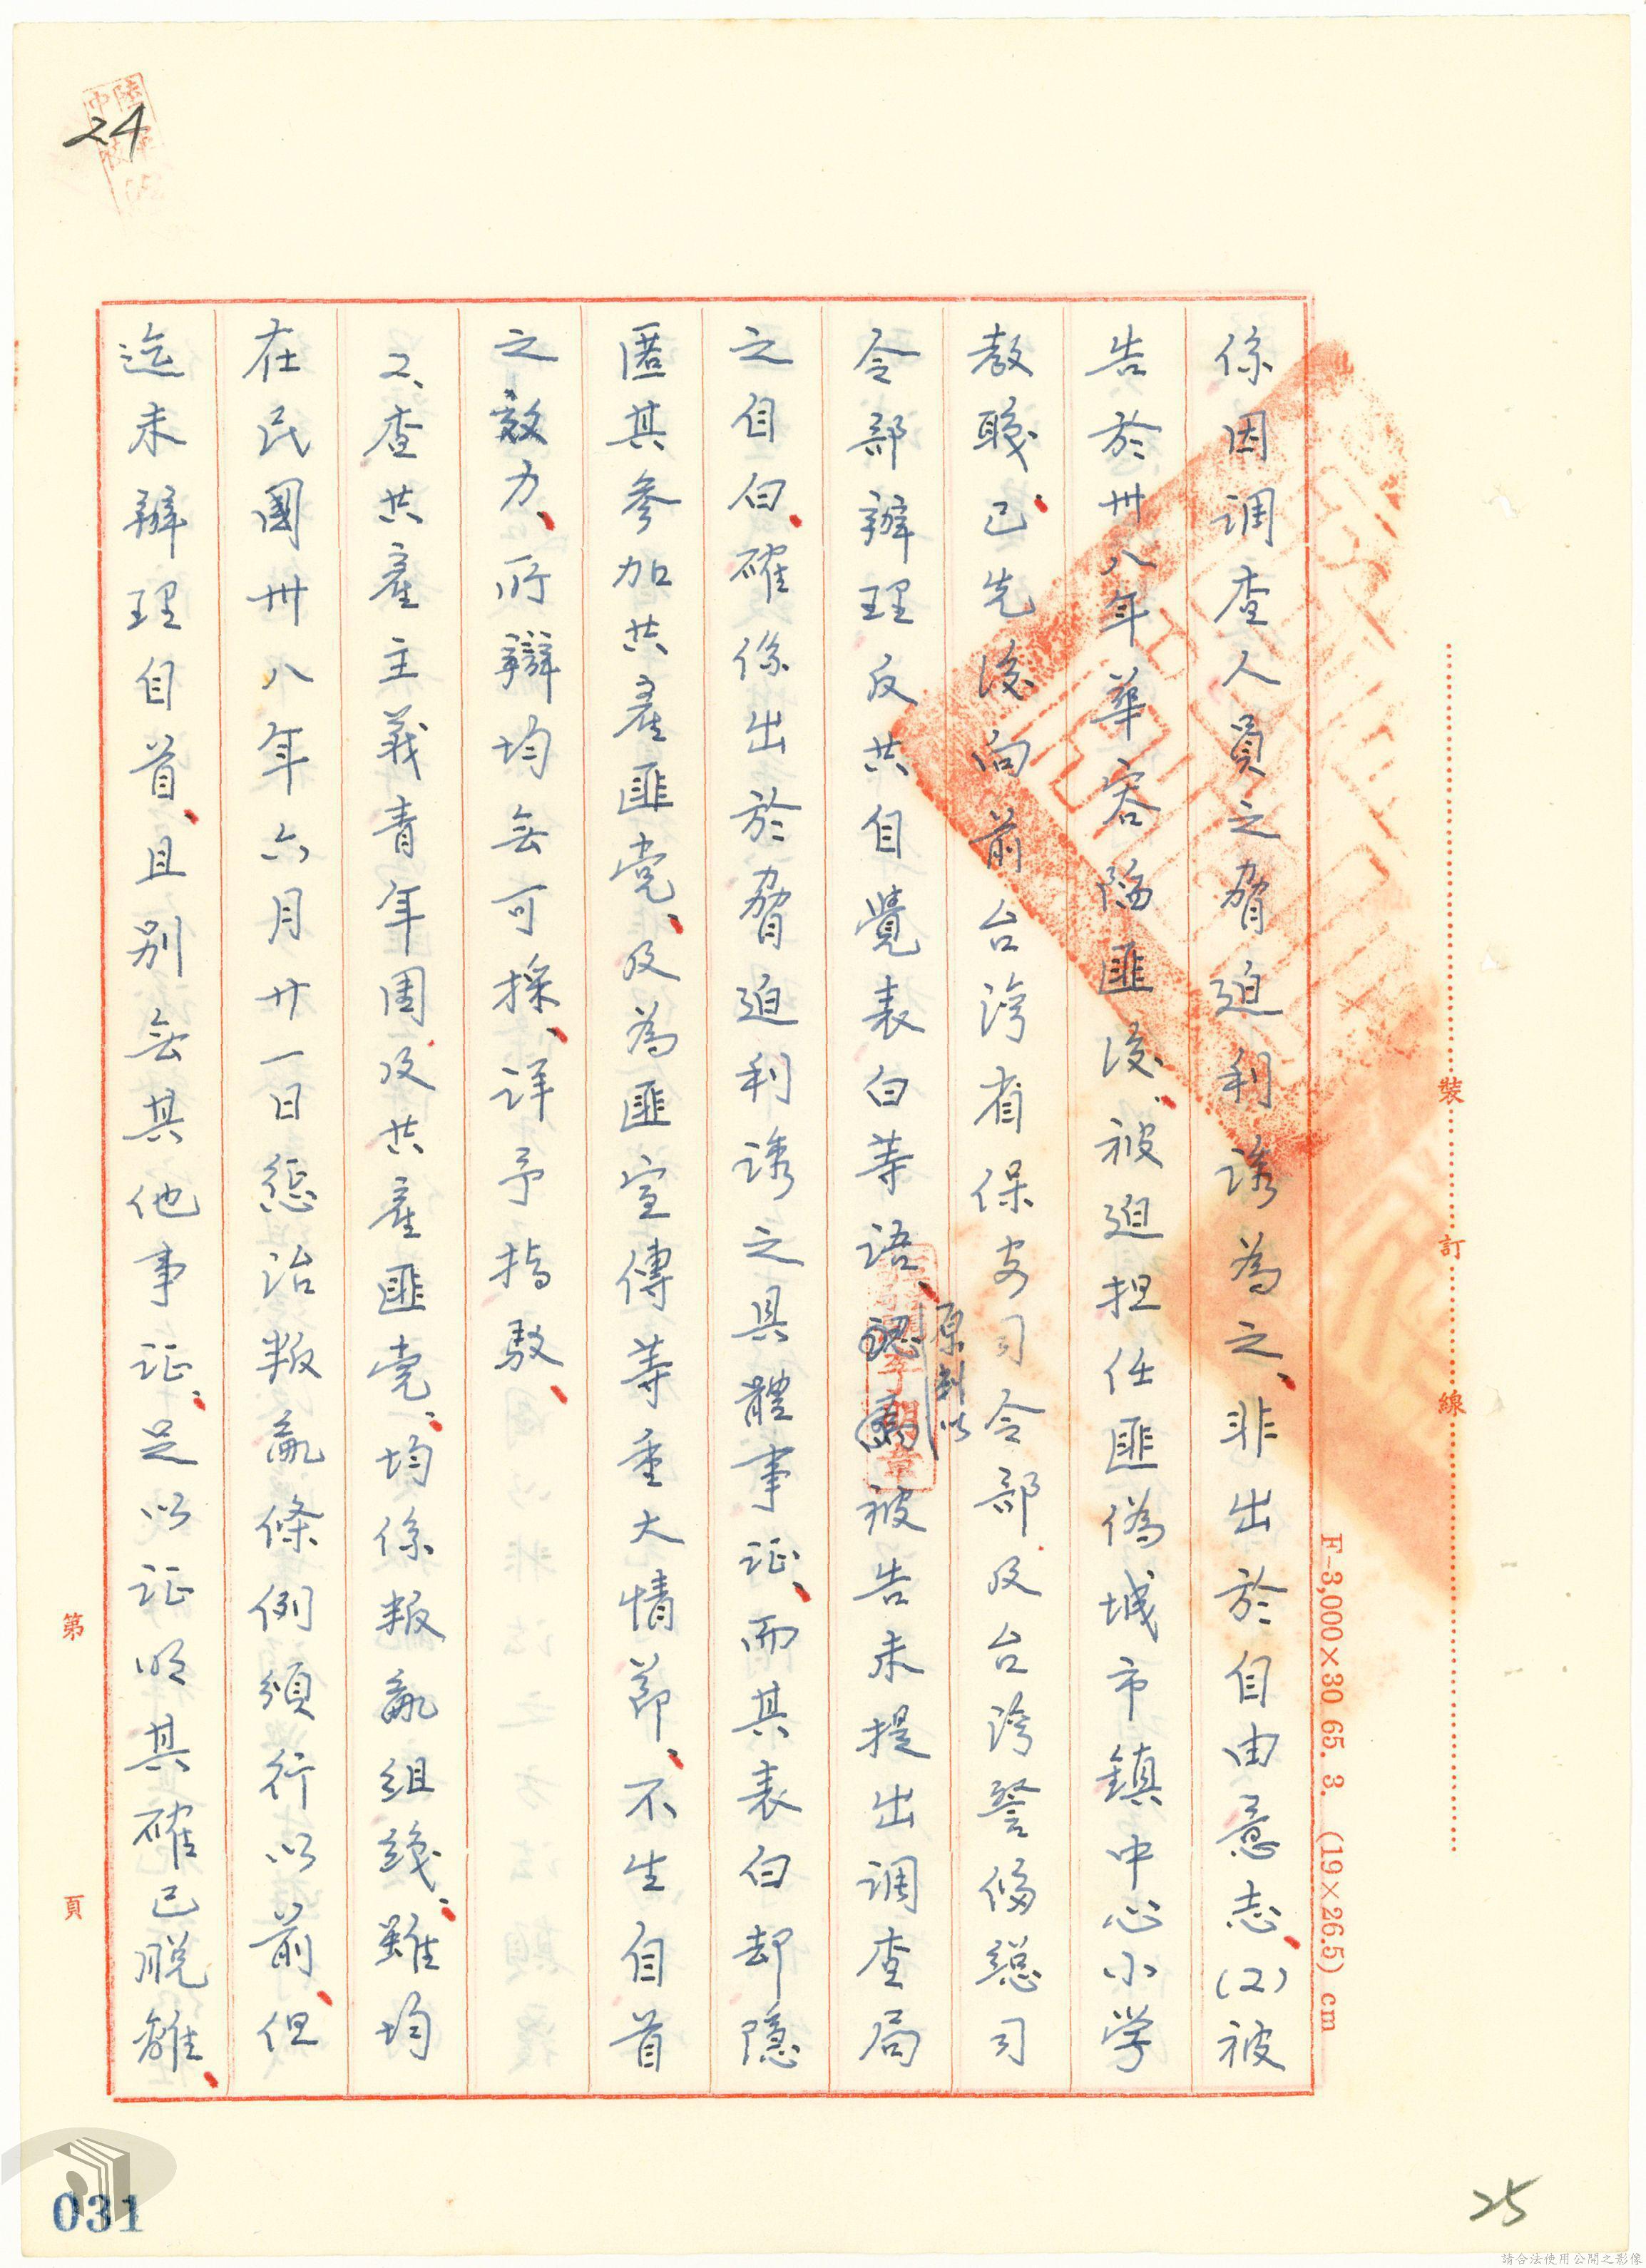 24
係因调查人員之脅迫利誘為之、非出於自由意志、(2)被
告於卅八年華容陷匪後、被迫担任匪偽城市鎮中心小学
教職、已先後向前台湾省保安司令部及台湾警俻總司
令部辦理反共自覺表白等语、原判以被告未提出调查局
之自白、確係出於脅迫利誘之具體事证、而其表白却隐
匿其參加共產匪党、及為匪宣傳等重大情节、不生自首
之效力、所辯均无可採、详予指駁、
2、查共產主義青年团及共產匪党、均係叛亂組織、雖均
在民國卅八年六月廿一日懲治叛亂條例頒行以前、但
迄未辦理自首、且别无其他事证、足以证明其確已脱離、
裝
訂
線
F-3,000×30 65. 3. (19×26.5) cm
第
頁
031
25
請合法使用公開之影像